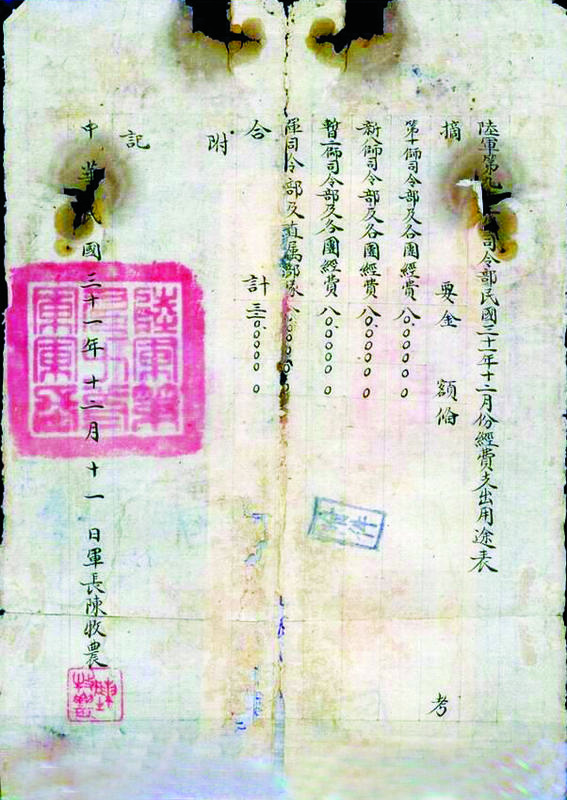 陸軍第九十三軍司令部民國三十一年十二月份經費支出用途表
摘要金額備考
第十師司令部及各團經費八0.0000 0
新八師司令部及各團經費八0.0000 0
暫二師司令部及各團經費八0.0000 0
軍司令部及直属部隊八0.0000 0
合計三
附
記
中華民國三十一年十二月十一日軍長陳牧農
陸軍第